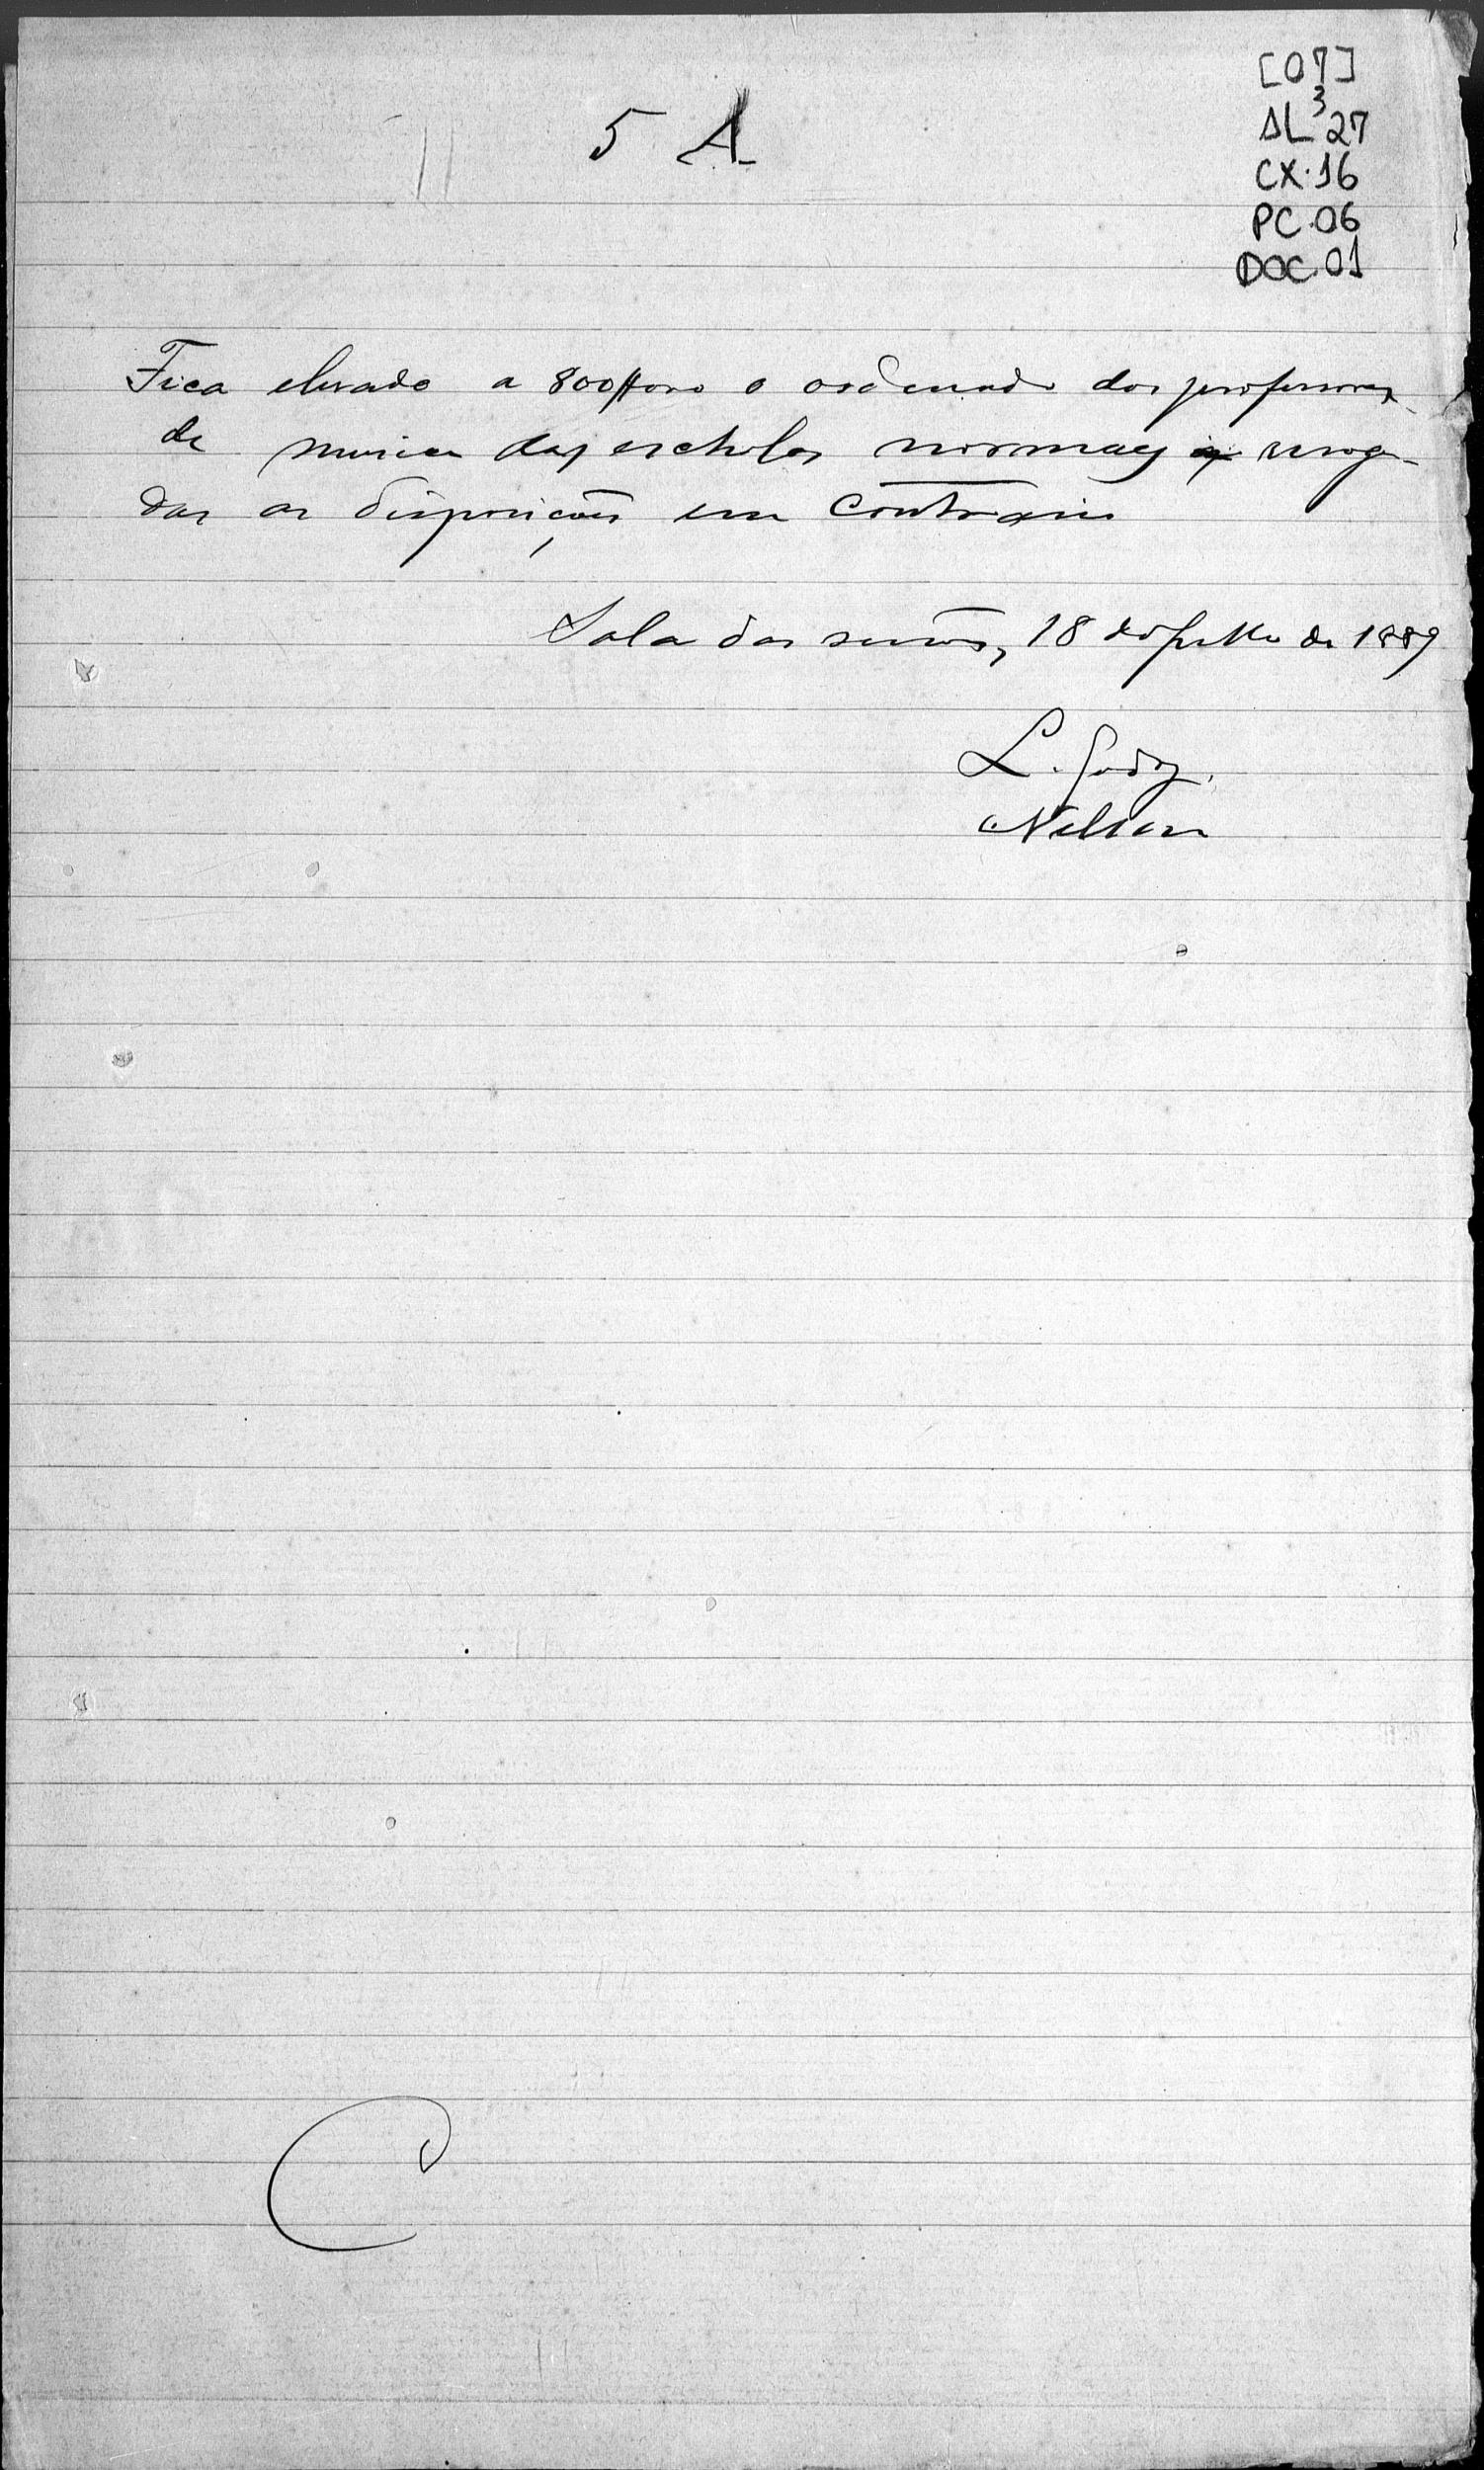 [07]
AL³27
CX.16
PC.06
DOC.01
5 A
Fica elevado a 800$000 o ordenado dos professores
de musica das escholas normaes revoga-
das as disposições em contrario
Sala das sessões, 18 de Julho de 1889
L. Godoy.
Nelson
C